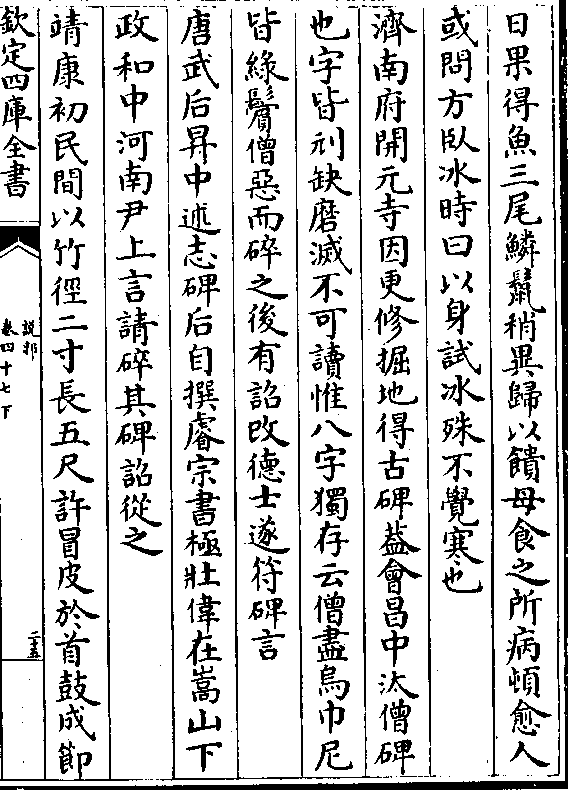 日果得魚三尾鱗鬛稍異歸以饋母食之所病頓愈人
或問方臥冰時曰以身試冰殊不覺寒也
濟南府開元寺因更修掘地得古碑葢會昌中汰僧碑
也字皆刓缺磨滅不可讀惟八字獨存云僧盡烏巾尼
皆綠鬢僧惡而碎之後有詔改德士遂符碑言
唐武后昇中述志碑后自撰睿宗書極壯偉在嵩山下
政和中河南尹上言請碎其碑詔從之
靖康初民間以竹徑二寸長五尺許冒皮於首鼓成節
欽定四庫全書
說郛
卷四十七下
二十五